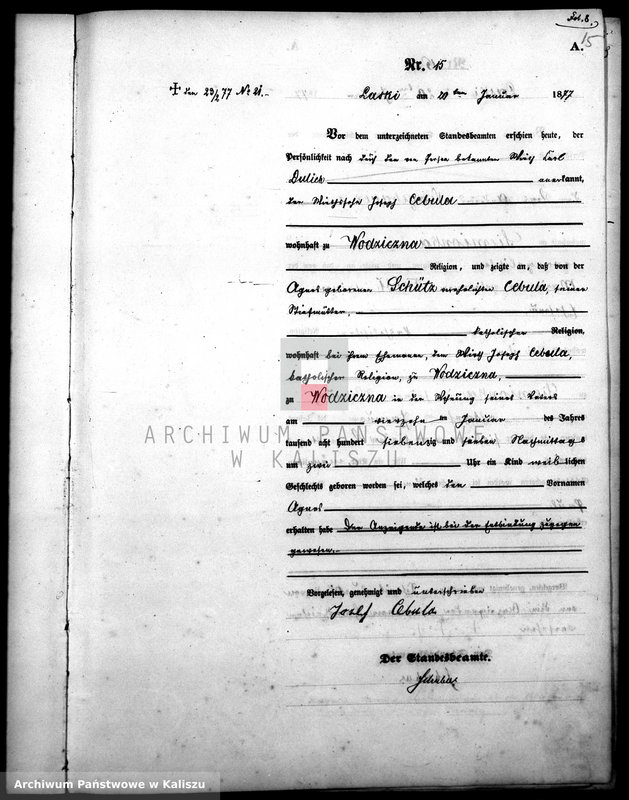 Fol. 8.
15
A.
Nr. 15
† den 23/2 77 No 21.
Laski am 20ten Januar 1877
Vor dem unterzeichneten Standesbeamten erschien heute, der
Persönlichkeit nach durch den von Person bekannten Wirth Karl
Dulich anerkannt,
der Wirthssohn Joseph Cebula
wohnhaft zu Wodziczna
Religion, und zeigte an, daß von der
Agnes geborenen Schütz verehelichten Cebula, seiner
Stiefmutter,
katholischer Religion,
wohnhaft bei ihrem Ehemanne, dem Wirth Joseph Cebula,
katholischer Religion, zu Wodziczna,
zu Wodziczna in der Wohnung seines Vaters
am vierzehnten Januar des Jahres
tausend acht hundert siebenzig und sieben Nachmittags
um zwei Uhr ein Kind weiblichen
Geschlechts geboren worden sei, welches den Vornamen
Agnes
erhalten habe Der Anzeigende ist bei der Entbindung zugegen
gewesen.
Vorgelesen, genehmigt und unterschrieben
Josef Cebula
Der Standesbeamte.
ARCHIWUM PAŃSTWOWE
W KALISZU
Archiwum Państwowe w Kaliszu